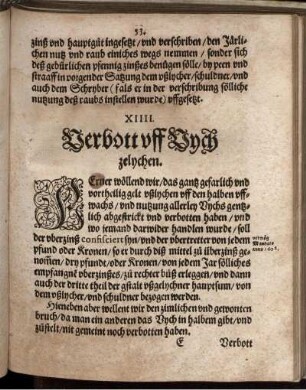 53.
zinß vnd hauptgůt ingesetzt / vnd verschriben / den Järli-
chen nutz vnd raub einiches wegs nemmen / sonder sich
deß gebürlichen pfennig zinßes benügen sölle / by peen vnd
straaff in vorgender Satzung dem vßlycher / schuldner / vnd
auch dem Schryber (fals er in der verschribung sölliche
nutzung deß raubs instellen wurde) vffgesetzt.
XIIII.
Verbott vff Vych
zelychen.
Ferner wöllend wir / das gantz gefarlich vnd
vortheilig gelt vßlychen vff den halben vff-
wachs / vnd nutzung allerley Vychs gentz-
lich abgestrickt vnd verbotten haben / vnd
wo jemand darwider handlen wurde / soll
der vberzinß confisciert syn / vnd der vbertretter von jedem
pfund oder Kronen / so er durch diß mittel zů vberzinß ge-
nommen / dry pfunde / oder Kronen / von jedem Jar sölliches
empfangnē vberzinßes / zů rechter bůß erleggen / vnd dann
auch der dritte theil der gstalt vßgelychner hauptsum / von
dem vßlycher / vnd schuldner bezogen werden.
Hieneben aber wellent wir den zimlichen vnd gewonten
bruch / da man ein anderen das Vych in halbem gibt / vnd
zůstelt / nit gemeint noch verbotten haben.
E Verbott